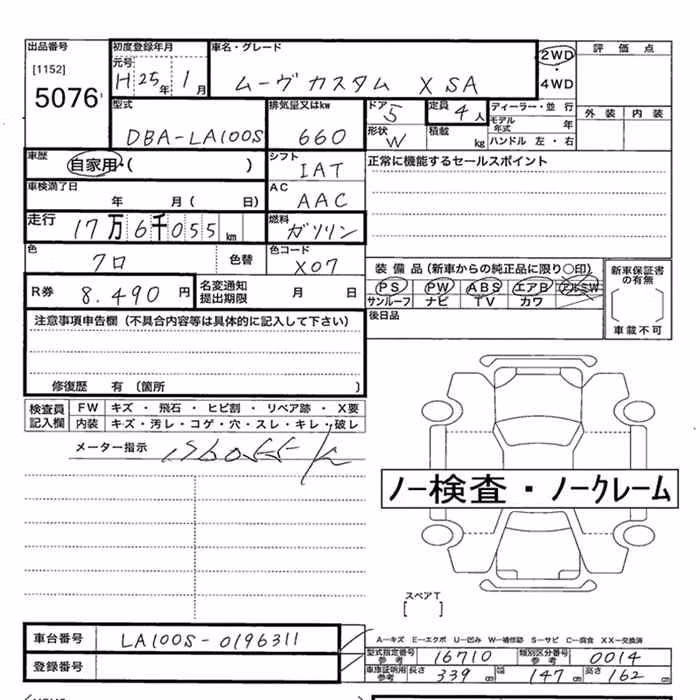 出品番号
[1152]
5076
初度登録年月
元号
H 25年 1月
車名・グレード
ムーヴ カスタム X SA
2WD
・
4WD
評価点
外装 内装
型式
DBA-LA100S
排気量又はkw
660
ドア 5
形状 W
定員 4人
積載 kg
ディーラー・並行
モデル年式 年
ハンドル 左・右
車歴
自家用・( )
シフト
IAT
正常に機能するセールスポイント
車検満了日
年 月( 日)
AC
AAC
走行 17万6千055km
燃料
ガソリン
色
クロ
色替
色コード
X07
装備品(新車からの純正品に限り○印)
PS PW ABS エアB アルSW
サンルーフ ナビ TV カワ
新車保証書の有無
[ ]
車載不可
R券 8.490円
名変通知
提出期限
月 日
後日品
注意事項申告欄(不具合内容等は具体的に記入して下さい)
修復歴 有 (箇所 )
検査員
記入欄
FW キズ・飛石・ヒビ割・リペア跡・X要
内装 キズ・汚レ・コゲ・穴・スレ・キレ・破レ
メーター指示
ノー検査・ノークレーム
スペアT
[ ]
車台番号 LA100S-0196311
登録番号
A−キズ E−エクボ U−凹み W−補修跡 S−サビ C−腐食 XX−交換済
型式指定番号
参考
16710
類別区分番号
参考
0014
車庫証明用
参考
長さ 339cm 幅 147cm 高さ 162cm